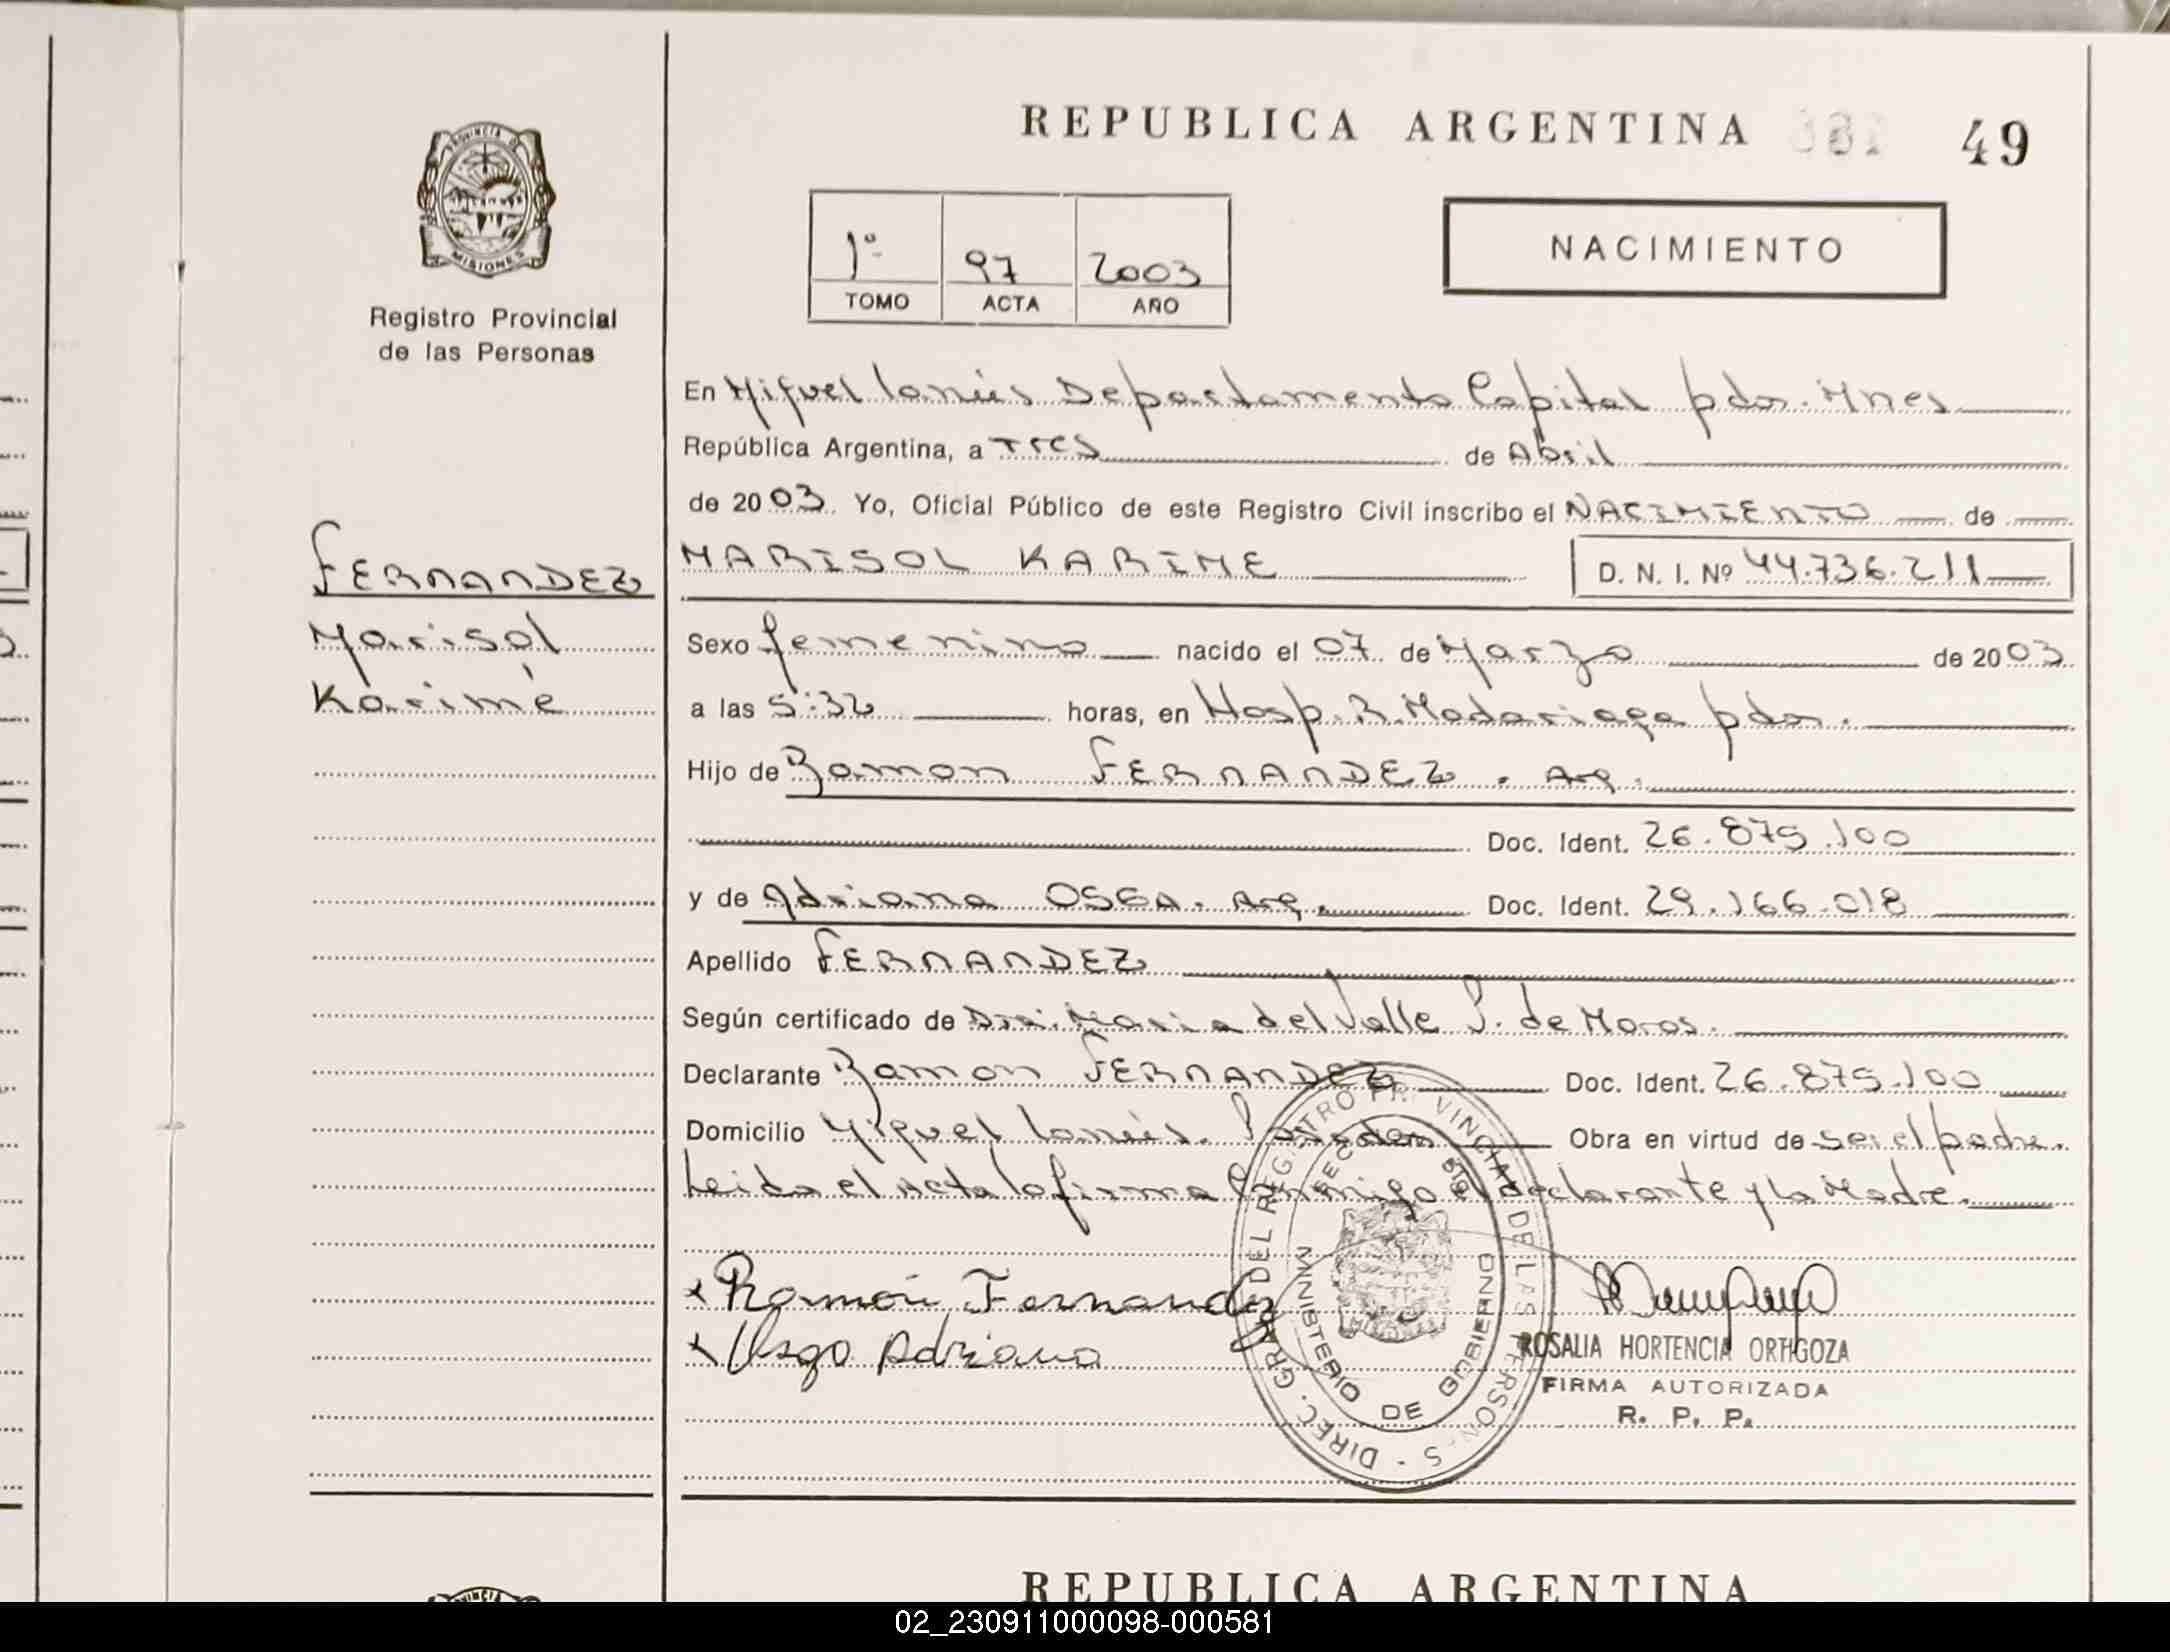 REPUBLICA ARGENTINA
49
PROVINCIA DE
MISIONES
Registro Provincial
de las Personas
1º 97 2003
TOMO ACTA AÑO
NACIMIENTO
En Miguel Lanús Departamento Capital pdas. Mnes
República Argentina, a Tres de Abril
de 2003. Yo, Oficial Público de este Registro Civil inscribo el NACIMIENTO de
MARISOL KARIME D. N. I. Nº 44.736.211
FERNANDEZ
Marisol
Karime
Sexo femenino nacido el 07 de Marzo de 2003
a las 5:32 horas, en Hosp. R. Madariaga pdas.
Hijo de Ramon FERNANDEZ. Arg.
Doc. Ident. 26.875.100
y de Adriana Arg. Doc. Ident. 29.166.018
Apellido FERNANDEZ
Según certificado de Dra. Maria del Valle P. de Moros.
Declarante Ramon FERNANDEZ Doc. Ident. 26.875.100
Domicilio Miguel Lanús. Posadas Obra en virtud de ser el padre.
Leida el acta la firma Conmigo el declarante y La Madre.
Ramón Fernandez
Adriana
DIREC. GRAL. DEL REGISTRO PROVINCIAL DE LAS PERSONAS
MINISTERIO DE GOBIERNO
ROSALIA HORTENCIA ORTIGOZA
FIRMA AUTORIZADA
R. P. P.
REPUBLICA ARGENTINA
02_230911000098-000581